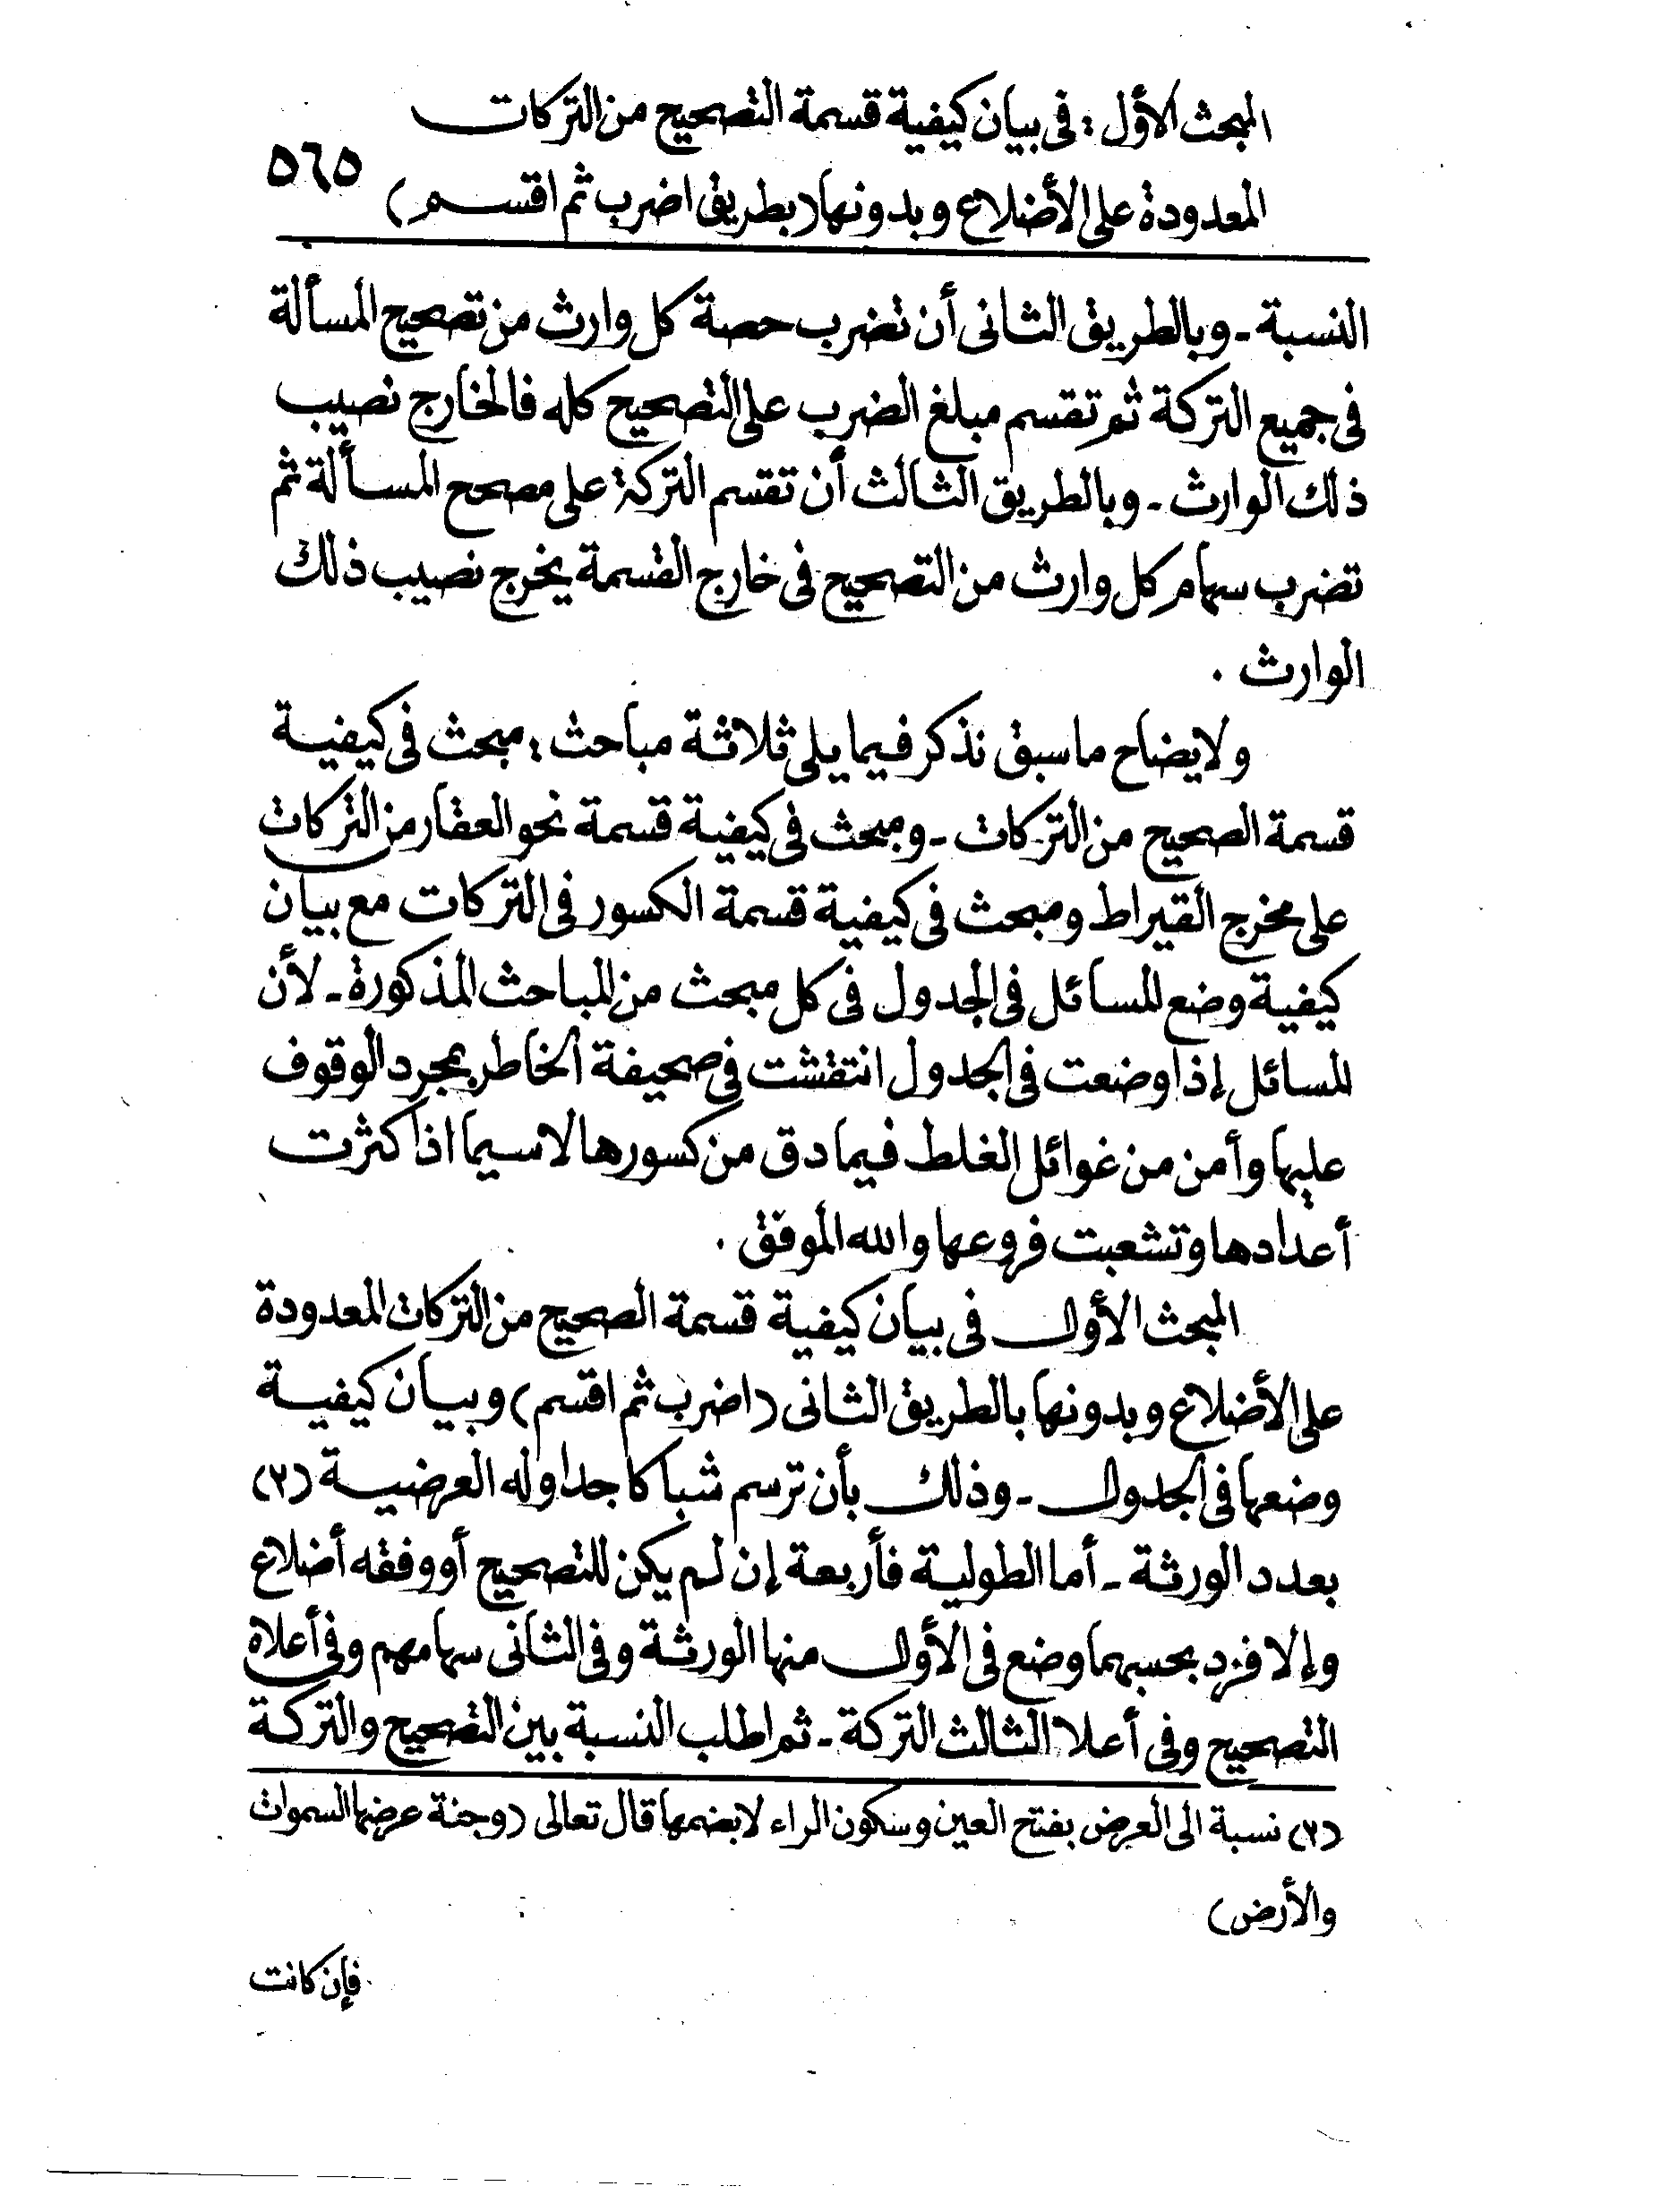 المبحث الأول : فى بيان كيفية قسمة التصحيح من التركات
٥٦٥
المعدودة على الأضلاع وبدونها (بطريق اضرب ثم اقسم)
النسبة - وبالطريق الثانى أن تضرب حصة كل وارث من تصحيح المسألة
فى جميع التركة ثم تقسم مبلغ الضرب على التصحيح كله فالخارج نصيب
ذلك الوارث - وبالطريق الثالث أن تقسم التركة على مصحح المسألة ثم
تضرب سهام كل وارث من التصحيح فى خارج القسمة يخرج نصيب ذلك
الوارث .
ولايضاح ماسبق نذكر فيما يلى ثلاثة مباحث : مبحث فى كيفية
قسمة الصحيح من التركات - ومبحث فى كيفية قسمة نحو العقار من التركات
على مخرج القيراط ومبحث فى كيفية قسمة الكسور فى التركات مع بيان
كيفية وضع المسائل فى الجدول فى كل مبحث من المباحث المذكورة - لأن
المسائل إذا وضعت فى الجدول انتقشت فى صحيفة الخاطر بمجرد الوقوف
عليها وأمن من غوائل الغلط فيما دق من كسورها لاسيما اذا كثرت
أعدادها وتشعبت فروعها والله الموفق .
المبحث الأول فى بيان كيفية قسمة الصحيح من التركات المعدودة
على الأضلاع وبدونها بالطريق الثانى (اضرب ثم اقسم) وبيان كيفية
وضعها فى الجدول - وذلك بأن ترسم شباكا جداوله العرضية (٢)
بعدد الورثة - أما الطولية فأربعة إن لم يكن للتصحيح أو وفقه أضلاع
وإلا فزد بحسبهما وضع فى الأول منها الورثة وفى الثانى سهامهم وفى أعلاه
التصحيح وفى أعلا الثالث التركة - ثم اطلب النسبة بين التصحيح والتركة
(٢) نسبة الى العرض بفتح العين وسكون الراء لا بضمها قال تعالى (وجنة عرضها السموات
والأرض)
فإن كانت